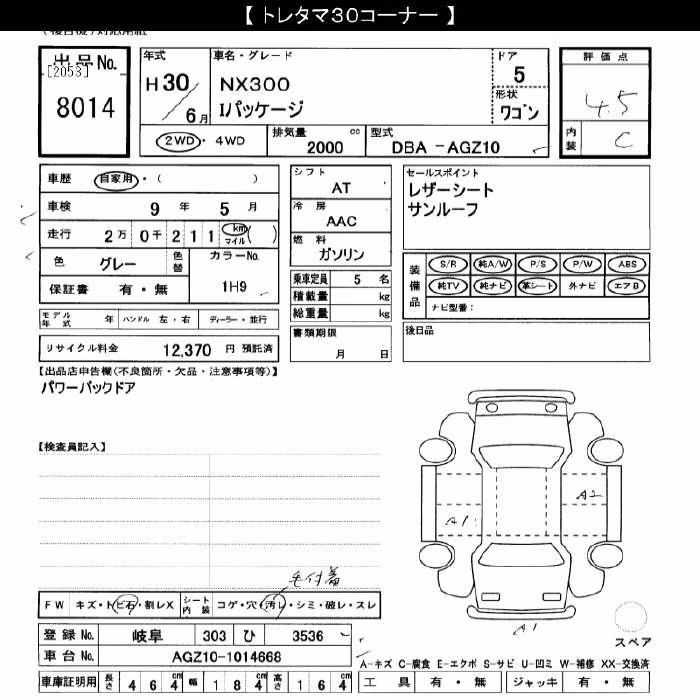 【 トレタマ30コーナー 】
出品No.
[2053]
8014
年式
H 30 / 6月
車名・グレード
NX300
Iパッケージ
ドア
5
形状
ワゴン
評価点
4.5
内装
C
2WD・4WD
排気量
2000 cc
型式
DBA -AGZ10
車歴 自家用・( )
車検 9 年 5 月
走行 2万 0千 2 1 1 km マイル ( )
色 グレー 色替
カラーNo.
1H9
保証書 有・無
シフト
AT
冷房
AAC
燃料
ガソリン
乗車定員 5 名
積載量 kg
総重量 kg
セールスポイント
レザーシート
サンルーフ
装備品
S/R 純A/W P/S P/W ABS
純TV 純ナビ 革シート 外ナビ エアB
ナビ型番:
モデル年式 年 ハンドル 左・右 ディーラー・並行
書類期限
月 日
後日品
リサイクル料金 12,370 円 預託済
【出品店申告欄(不良箇所・欠品・注意事項等)】
パワーバックドア
【検査員記入】
A2
A1
A1
毛付着
FW キズ・トビ石・割レX シート内装 コゲ・穴・汚レ・シミ・破レ・スレ
スペア
登録No. 岐阜 303 ひ 3536
車台No. AGZ10-1014668
A-キズ C-腐食 E-エクボ S-サビ U-凹ミ W-補修 XX-交換済
車庫証明用 長さ 4 6 4 cm 幅 1 8 4 cm 高さ 1 6 4 cm
工具 有・無 ジャッキ 有・無